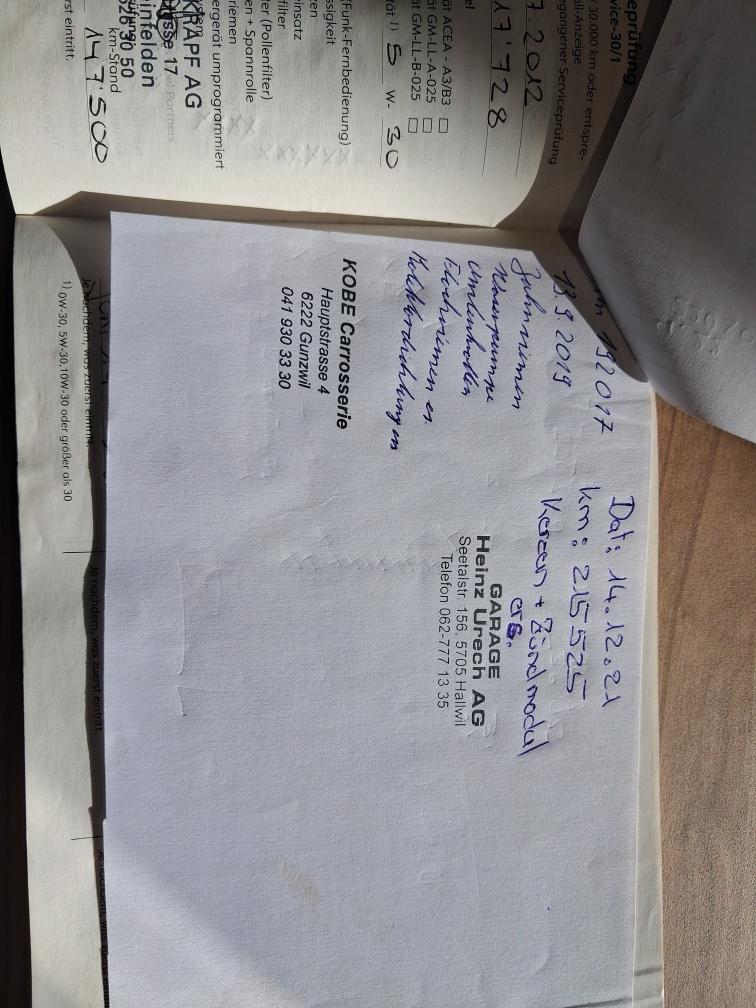 eprüfung
vice-30/1
/ 30.000 km oder entspre-
all-Anzeige
egangener Serviceprüfung
7.2012
17'728
el
ät ACEA - A3/B3
ät GM-LL-A-025
ät GM-LL-B-025
tät 1) 5 W- 30
(Funk-Fernbedienung)
ren
ssigkeit
insatz
filter
ter (Pollenfilter)
en + Spannrolle
riemen
ergerät umprogrammiert
KRAPF AG
sse 17
einfelden
626 30 50
km-Stand
147'500
rst eintritt.
192017
13.9 2019
Zahnriemen
Wasserpumpe
Umlenkrollen
KOBE Carrosserie
Hauptstrasse 4
6222 Gunzwil
041 930 33 30
Dat: 14.12.21
km: 215525
Kerzen + Zündmodul
ers.
GARAGE
Heinz Urech AG
Seetalstr. 156, 5705 Hallwil
Telefon 062-777 13 35
Je nachdem, was zuerst eintritt.
Je nachdem, was zuerst eintritt.
1) 0W-30, 5W-30,10W-30 oder größer als 30